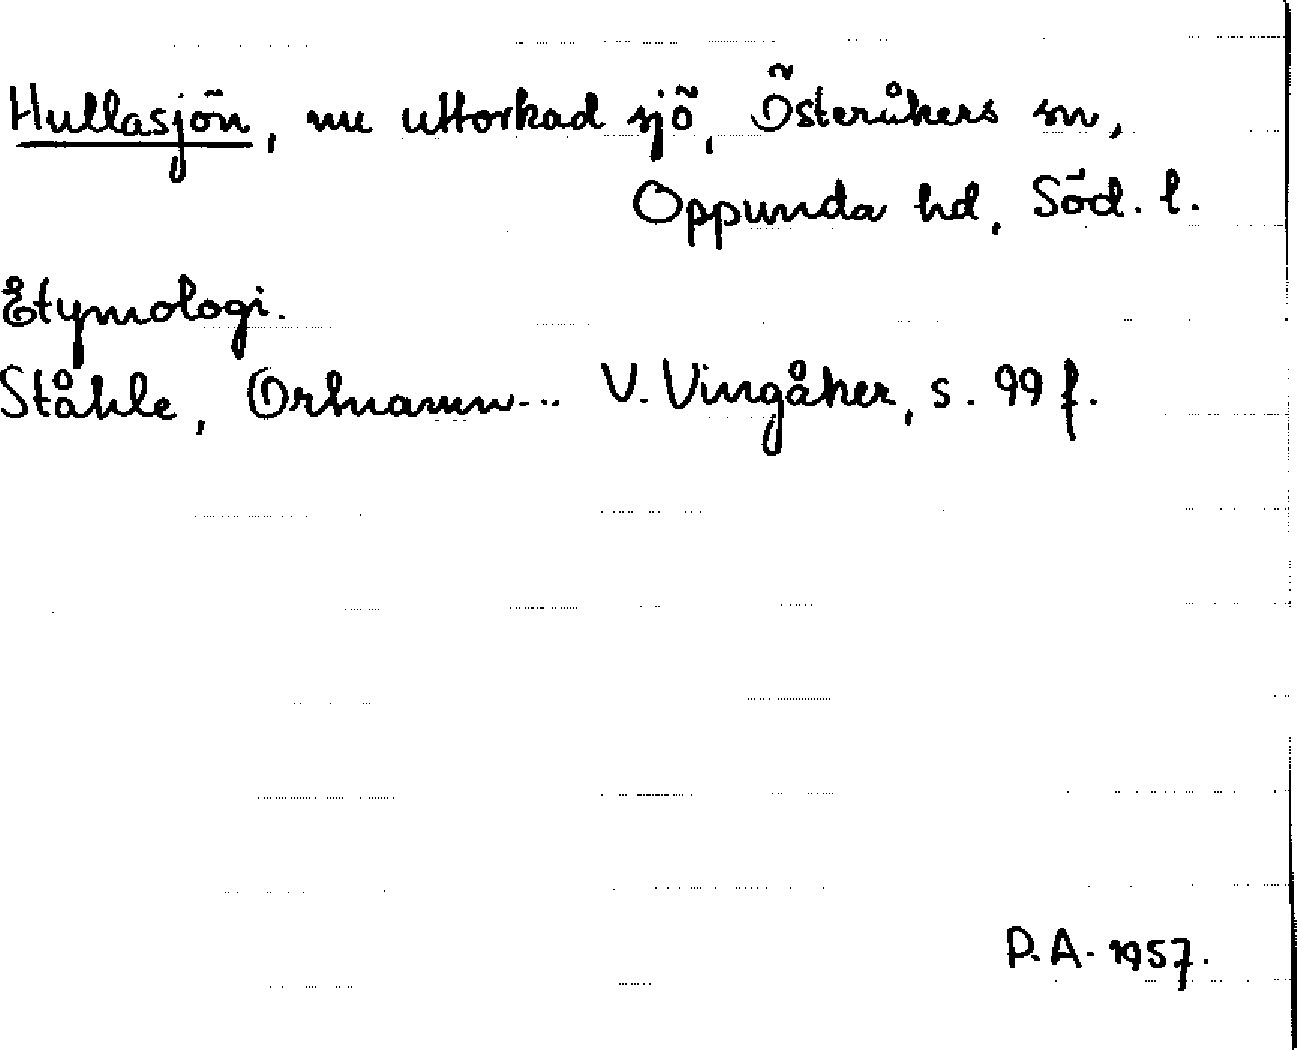 Hullasjön, nu uttorkad sjö, Österåkers sn,
Oppunda hd, Söd. l.
Etymologi.
Ståhle, Ortnamn... V. Vingåker, s. 99 f.
P.A. 1957.